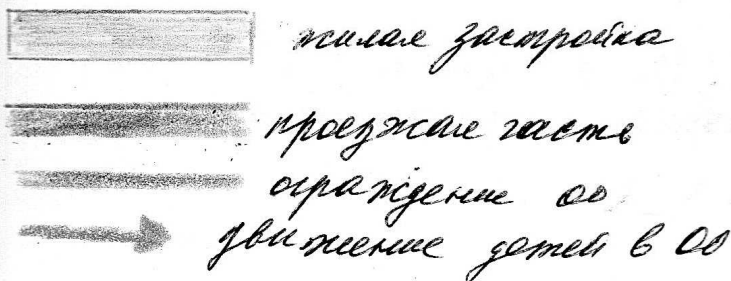 жилая застройка
проезжая часть
ограждение оо
движение детей в ОО